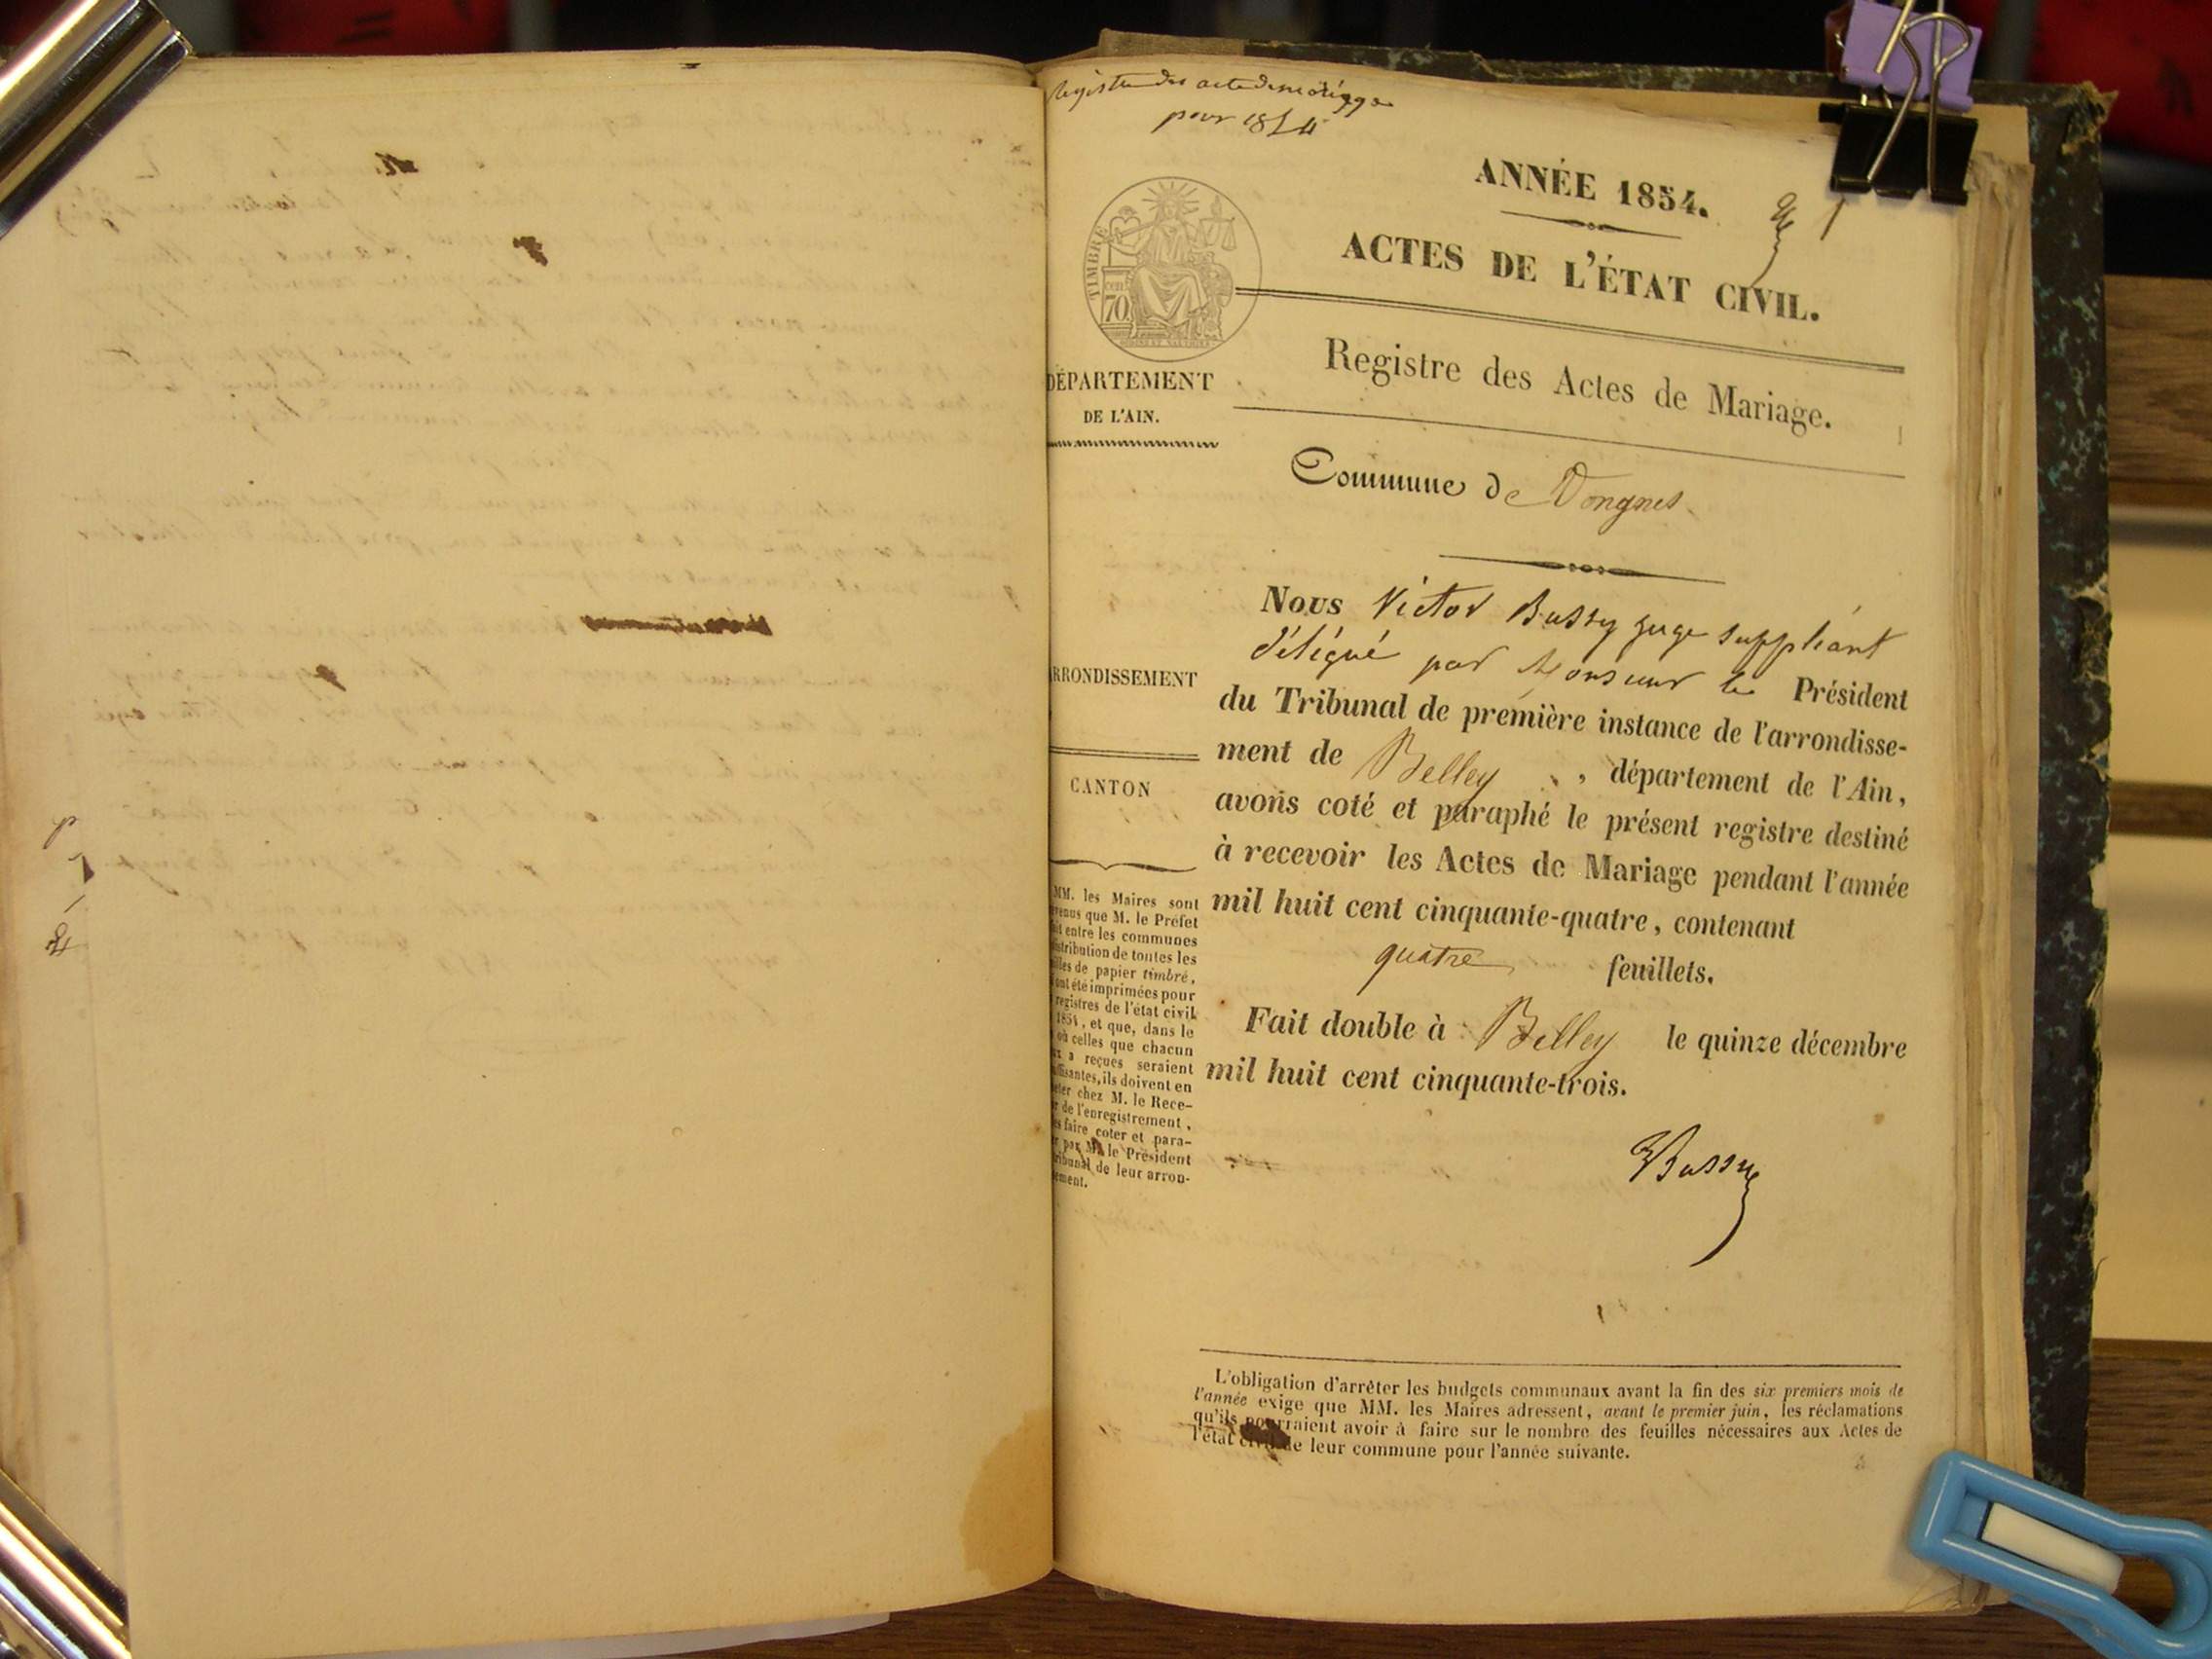 Registre des acte de mariage
pour 1854
ANNÉE 1854.
1
ACTES DE L'ÉTAT CIVIL.
TIMBRE
cen
70
Registre des Actes de Mariage.
DÉPARTEMENT
DE L'AIN.
Commune de Vongnes
Nous Victor Bussy juge suppléant
délégué par Monsieur le Président
du Tribunal de première instance de l'arrondisse-
ment de Belley, département de l'Ain,
avons coté et paraphé le présent registre destiné
à recevoir les Actes de Mariage pendant l'année
mil huit cent cinquante-quatre, contenant
quatre feuillets.
Fait double à Belley le quinze décembre
mil huit cent cinquante-trois.
VBussy
RRONDISSEMENT
CANTON
MM. les Maires sont
venus que M. le Préfet
it entre les communes
stribution de toutes les
illes de papier timbré,
ont été imprimées pour
registres de l'état civil
1854, et que, dans le
où celles que chacun
ux a reçues seraient
uffisantes, ils doivent en
eter chez M. le Rece-
r de l'enregistrement,
es faire coter et para-
r par M. le Président
ribunal de leur arron-
ement.
L'obligation d'arrêter les budgets communaux avant la fin des six premiers mois de
l'année exige que MM. les Maires adressent, avant le premier juin, les réclamations
qu'ils pourraient avoir à faire sur le nombre des feuilles nécessaires aux Actes de
l'état civil de leur commune pour l'année suivante.